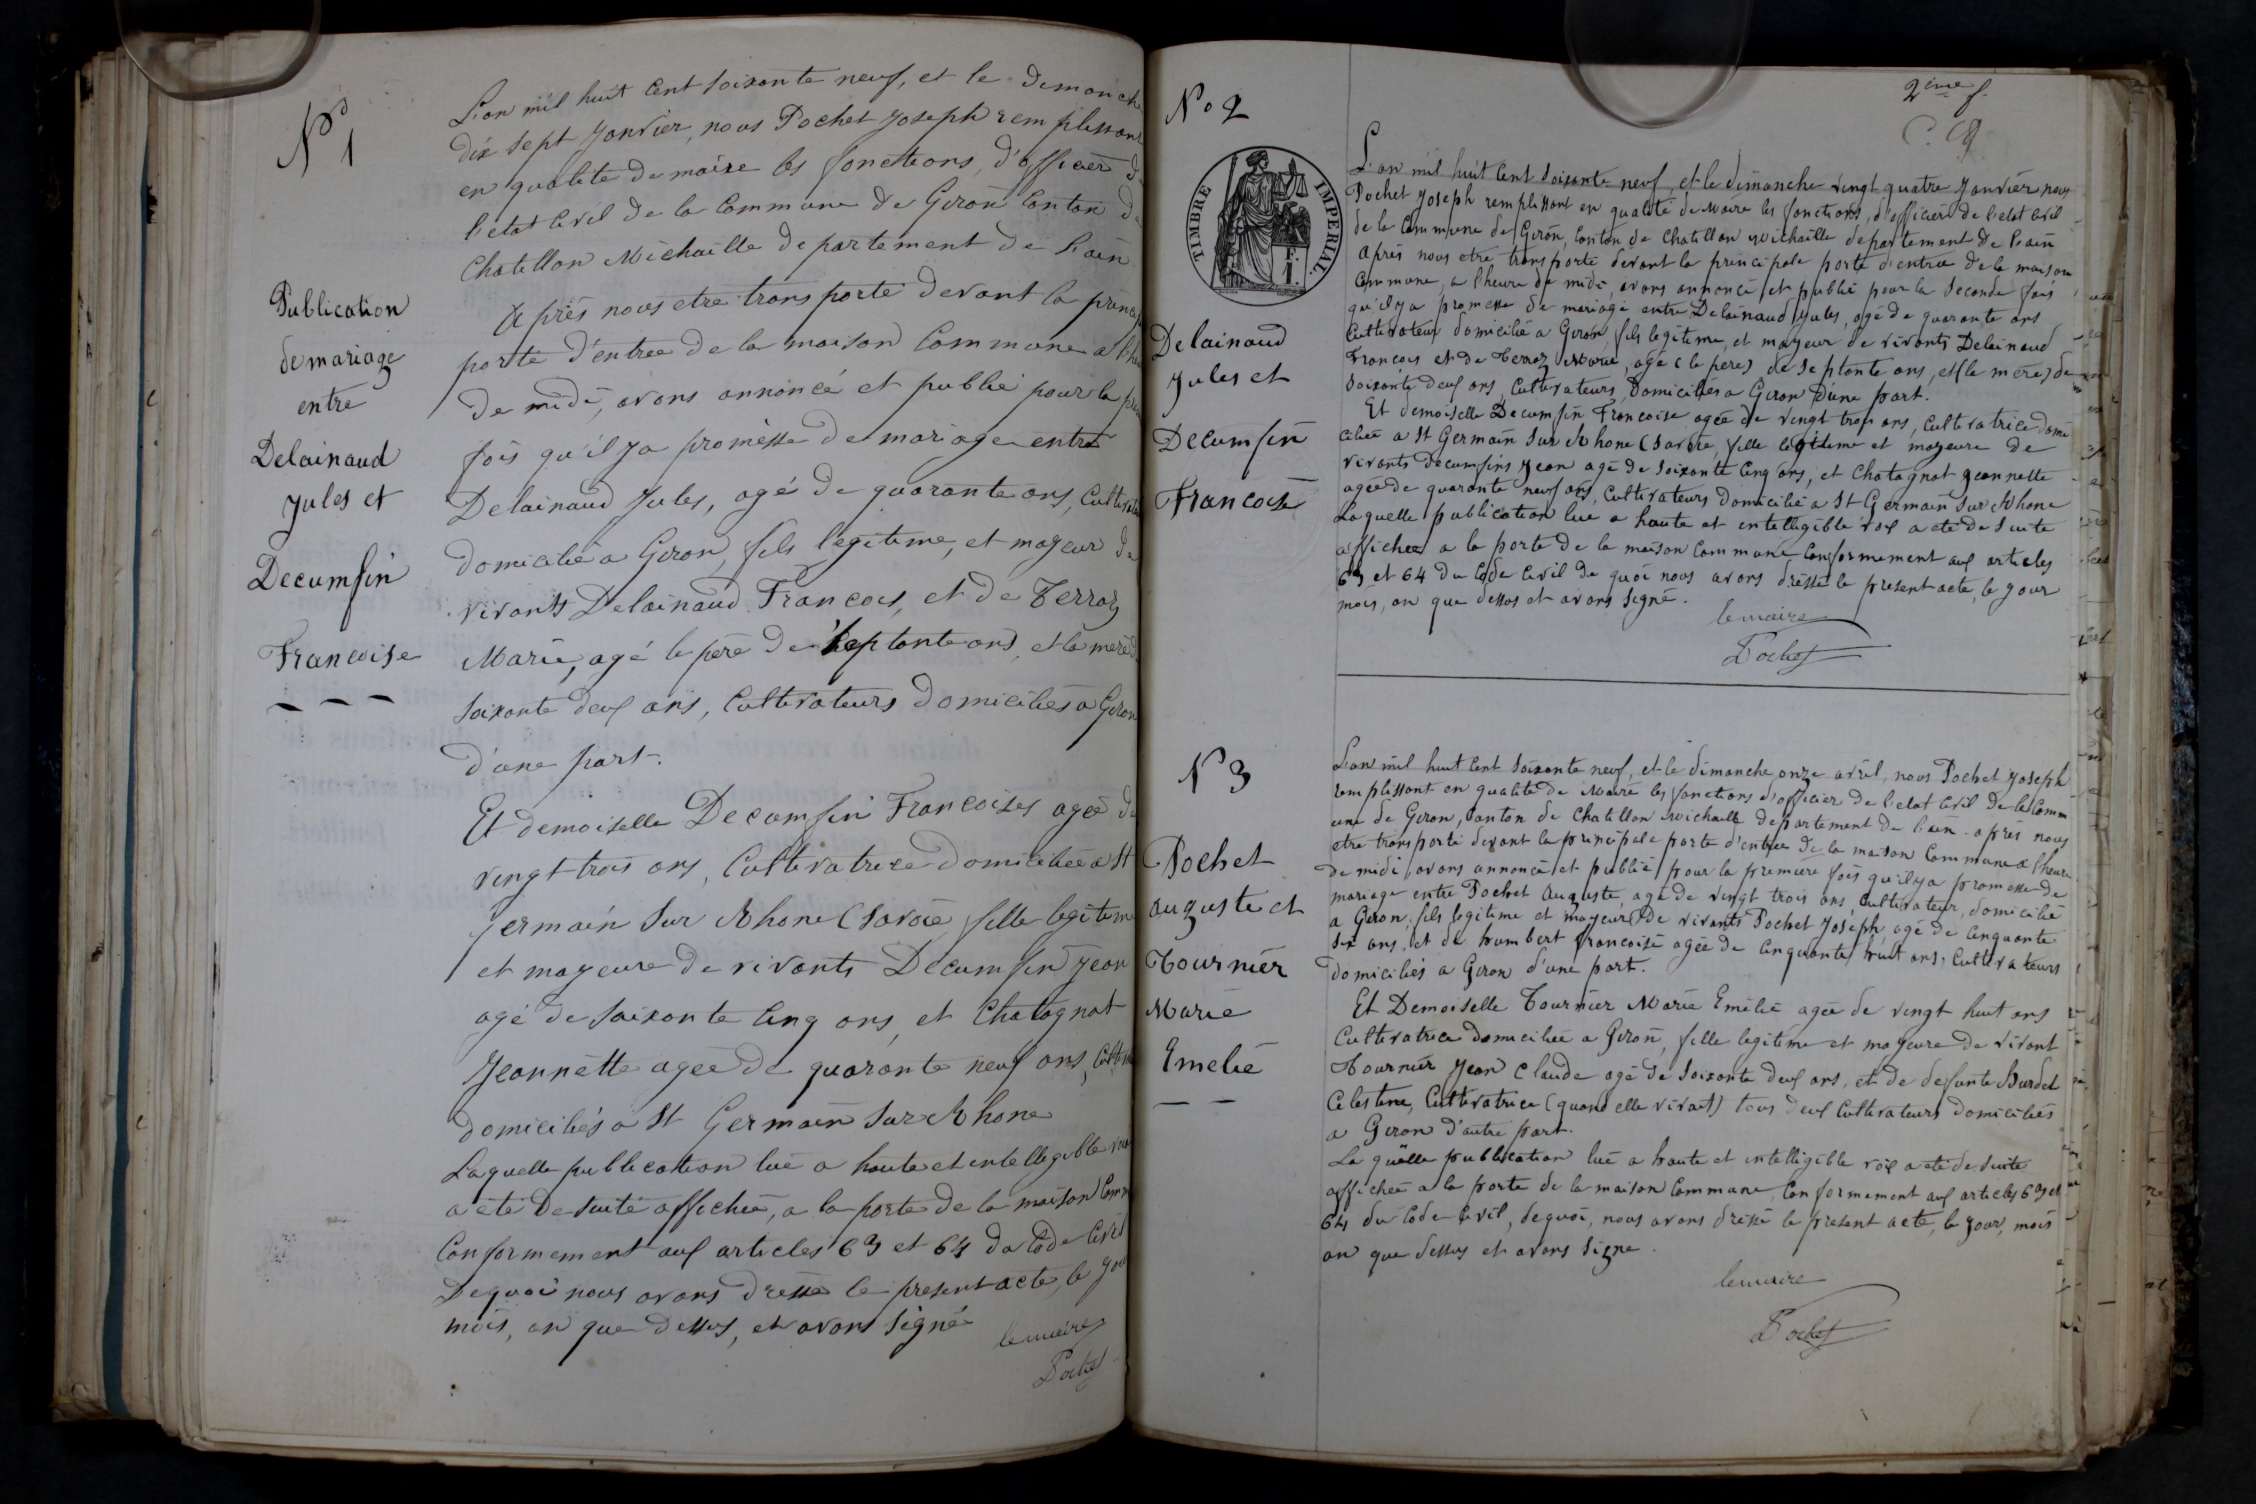 N° 1
Publication
de mariage
entre
Delainaud
Jules et
Decumfin
Francoise
L'an mil huit Cent Soixante neuf, et le dimanche
dix Sept Janvier, nous Pochet Joseph remplissant
en qualite de maire les fonctions, d'officier de
l'etat Civil de la Commune de Giron Canton de
Chatillon Michaille departement de l'ain
Après nous etre transporté devant la
porte d'entrée de la maison Commune a
de midi, avons annoncé et publié pour la
fois qu'il ya promesse de mariage entre
Delainaud Jules, agé de quarante ans,
domicilié a Giron, fils legitime, et mayeur de
vivants Delainaud Francois, et de Terroz
Marie, agé le père de Septante ans, et la mere
Soixante deux ans, Cultivateurs domiciliés a Giron
d'une part.
Et demoiselle Decumfin Francoises ageé de
vingt trois ans, Cultivatrice domiciliée a St
germain Sur Rhone (Savoie fille legitime
et mayeure de vivants Decumfin Jean
agé de Soixante Cinq ans, et Chatagnat
Jeannette ageé de quarante neuf ans,
domiciliés a St Germain Sur Rhone
Laquelle publication lue a haute et intelligible
a été de Suite affichée, a la porte de la maison
Conformement aux articles 63 et 64 du Code Civil
De quoi nous avons dressé le present acte, le jour
mois, an que dessus, et avons Signé
le maire
Pochet
2eme f.
N° 2
TIMBRE IMPERIAL.
F.
1.
Delainaud
Jules et
Decumfin
Francoise
L'an mil huit Cent Soixante neuf, et le dimanche vingt quatre Janvier nous
Pochet Joseph remplissant en qualité de Maire les fonctions, d'officier de l'etat Civil
de la Commune de Giron, Canton de Chatillon Michaille departement de l'ain
Après nous etre transporté devant la principale porte d'entrée de la maison
Commune, a l'heure de midi, avons annoncé et publié pour la Seconde fois
qu'il ya promesse de mariage entre Delainaud Jules, agé de quarante ans
Cultivateur domicilié a Giron, fils legitime, et mayeur de vivants Delainaud
Francois et de Terroz Marie, agé (le pere) de Septante ans, et (le mère) de
Soixante deux ans, Cultivateurs, Domiciliés a Giron d'une part.
Et demoiselle Decumfin Francoise ageé de vingt trois ans, Cultivatrice domi
ciliée a St Germain Sur Rhone (Savoie, fille legitime et mayeure de
vivants decumfins Jean agé de Soixante Cinq ans, et Chatagnat Jeannette
ageé de quarante neuf ans, Cultivateurs domicilié a St Germain Sur Rhone
Laquelle publication lue a haute et intelligible voix a eté de Suite
affichée a la porte de la maison Commune Conformement aux articles
63 et 64 du Code Civil de quoi nous avons dressé le present acte, le jour
mois, an que dessus et avons Signé.
le maire
Pochet
N° 3
Pochet
auguste et
Tournier
Marie
Emelie
L'an mil huit Cent Soixante neuf, et le dimanche onze avril, nous Pochet Joseph
remplissant en qualité de Maire les fonctions d'officier de l'etat Civil de la Comm
une de Giron, Canton de Chatillon Michaille departement de l'ain - après nous
etre transporté devant la principale porte d'entrée de la maison Commune a l'heure
de midi, avons annoncé et publié pour la première fois qu'il ya promesse de
mariage entre Pochet Auguste, agé de vingt trois ans, Cultivateur, domicilié
a Giron, fils legitime et mayeur de vivants Pochet Joseph, agé de Cinquante
Six ans, et de humbert francoise ageé de Cinquante huit ans, Cultivateurs
domiciliés a Giron d'une part.
Et Demoiselle Tournier Marie Emelie ageé de vingt huit ans
Cultivatrice domiciliée a Giron, fille legitime et mayeure de vivant
Tournier Jean Claude agé de Soixante deux ans, et de defunte Burdet
Celestine, Cultivatrice (quand elle vivait) tous deux Cultivateurs domiciliés
a Giron d'autre part.
La quelle publication lue a haute et intelligible voix a eté de Suite
affichée a la porte de la maison Commune, Conformement aux articles 63 et
64 du Code Civil, de quoi, nous avons dressé le present acte, le jour, mois
an que dessus et avons Signe.
le maire
Pochet